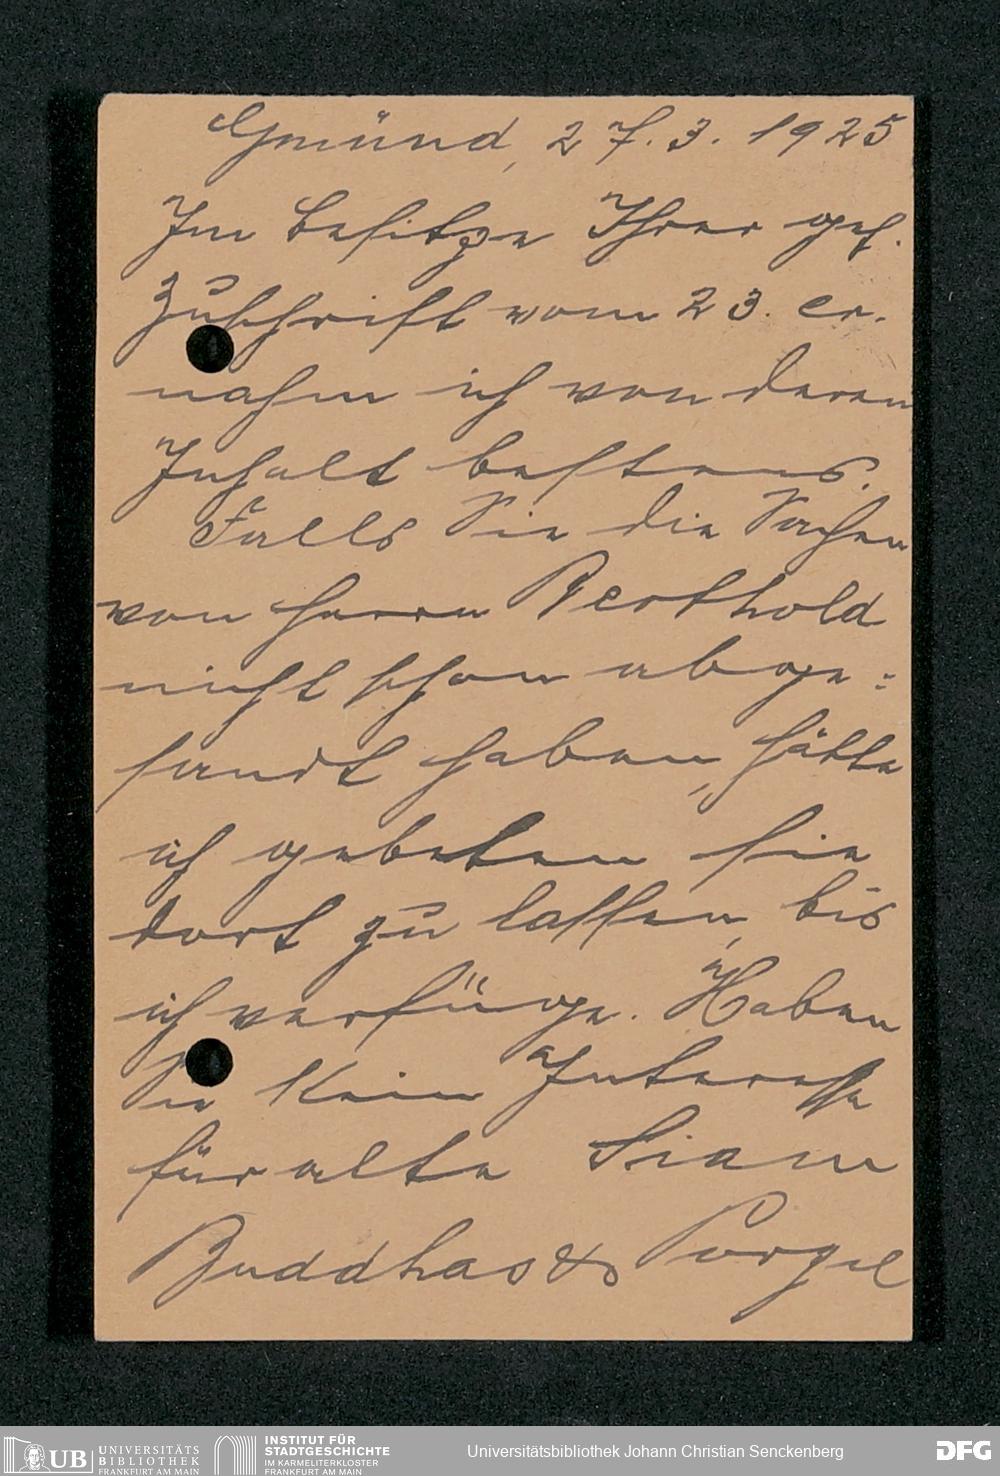 Gmünd, 27.3.1925
Im Besitze Ihrer gef.
Zuschrift vom 23. er-
nahm ich von deren
Inhalt bestens.
Falls Sie die Sachen
von Herrn Berthold
nicht schon abge=
sandt haben, hätte
ich gebeten sie
dort zu lassen, bis
ich verfüge. Haben
Sie kein Interesse
für alte Siam
Buddhas &
UB UNIVERSITÄTS
BIBLIOTHEK
FRANKFURT AM MAIN
INSTITUT FÜR
STADTGESCHICHTE
IM KARMELITERKLOSTER
FRANKFURT AM MAIN
Universitätsbibliothek Johann Christian Senckenberg
DFG